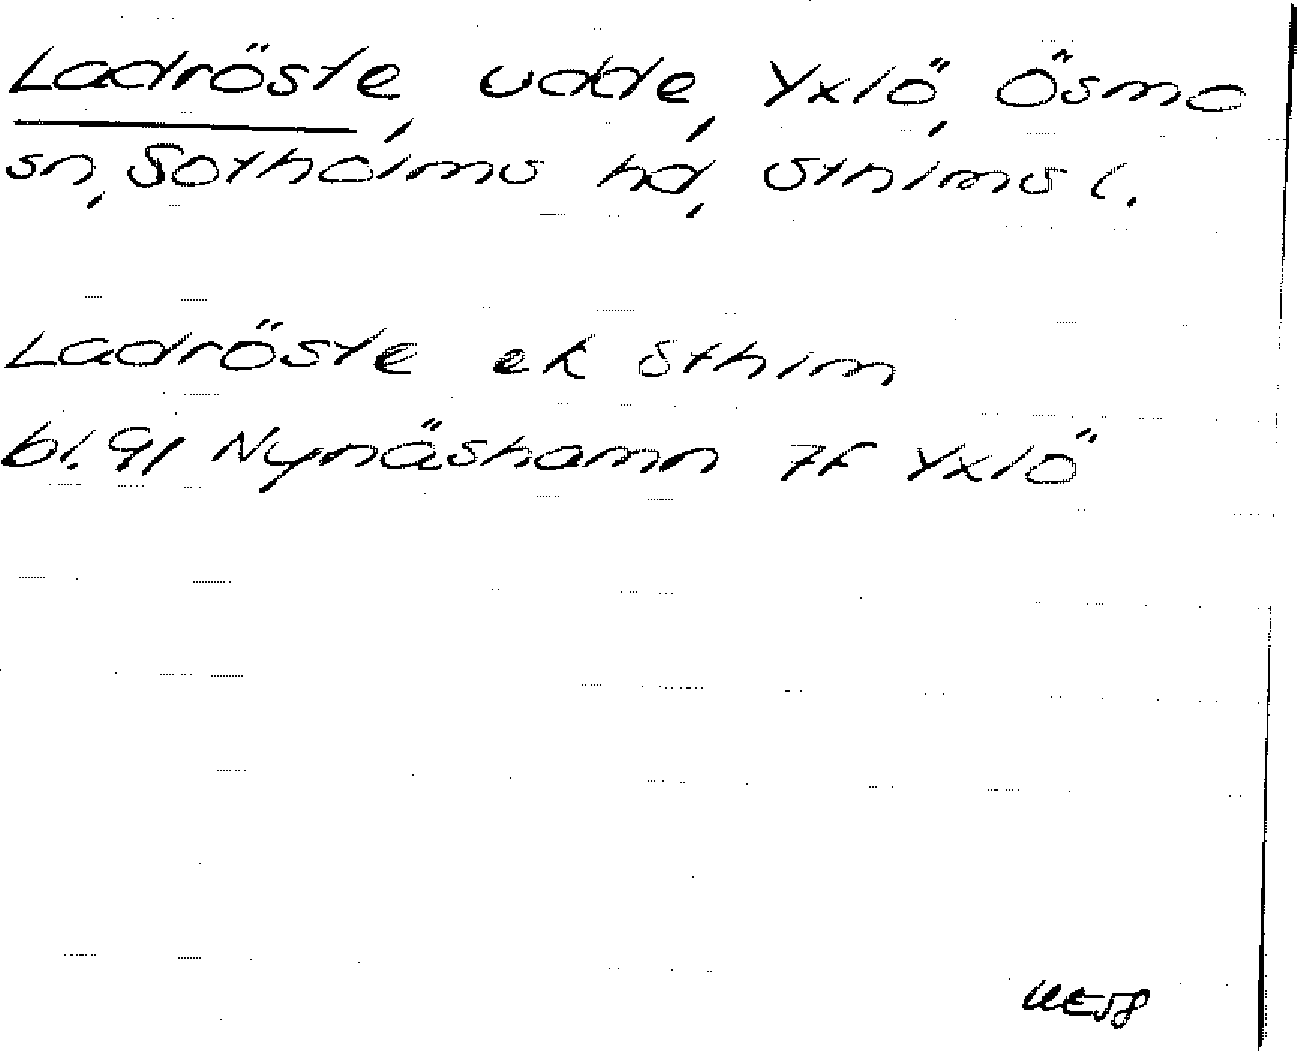 Ladröste, udde, Yxlö, Ösmo
sn, Sotholms hd, Sthlms l.
Ladröste ek Sthlm
bl. 91 Nynäshamn 7f Yxlö
UE58